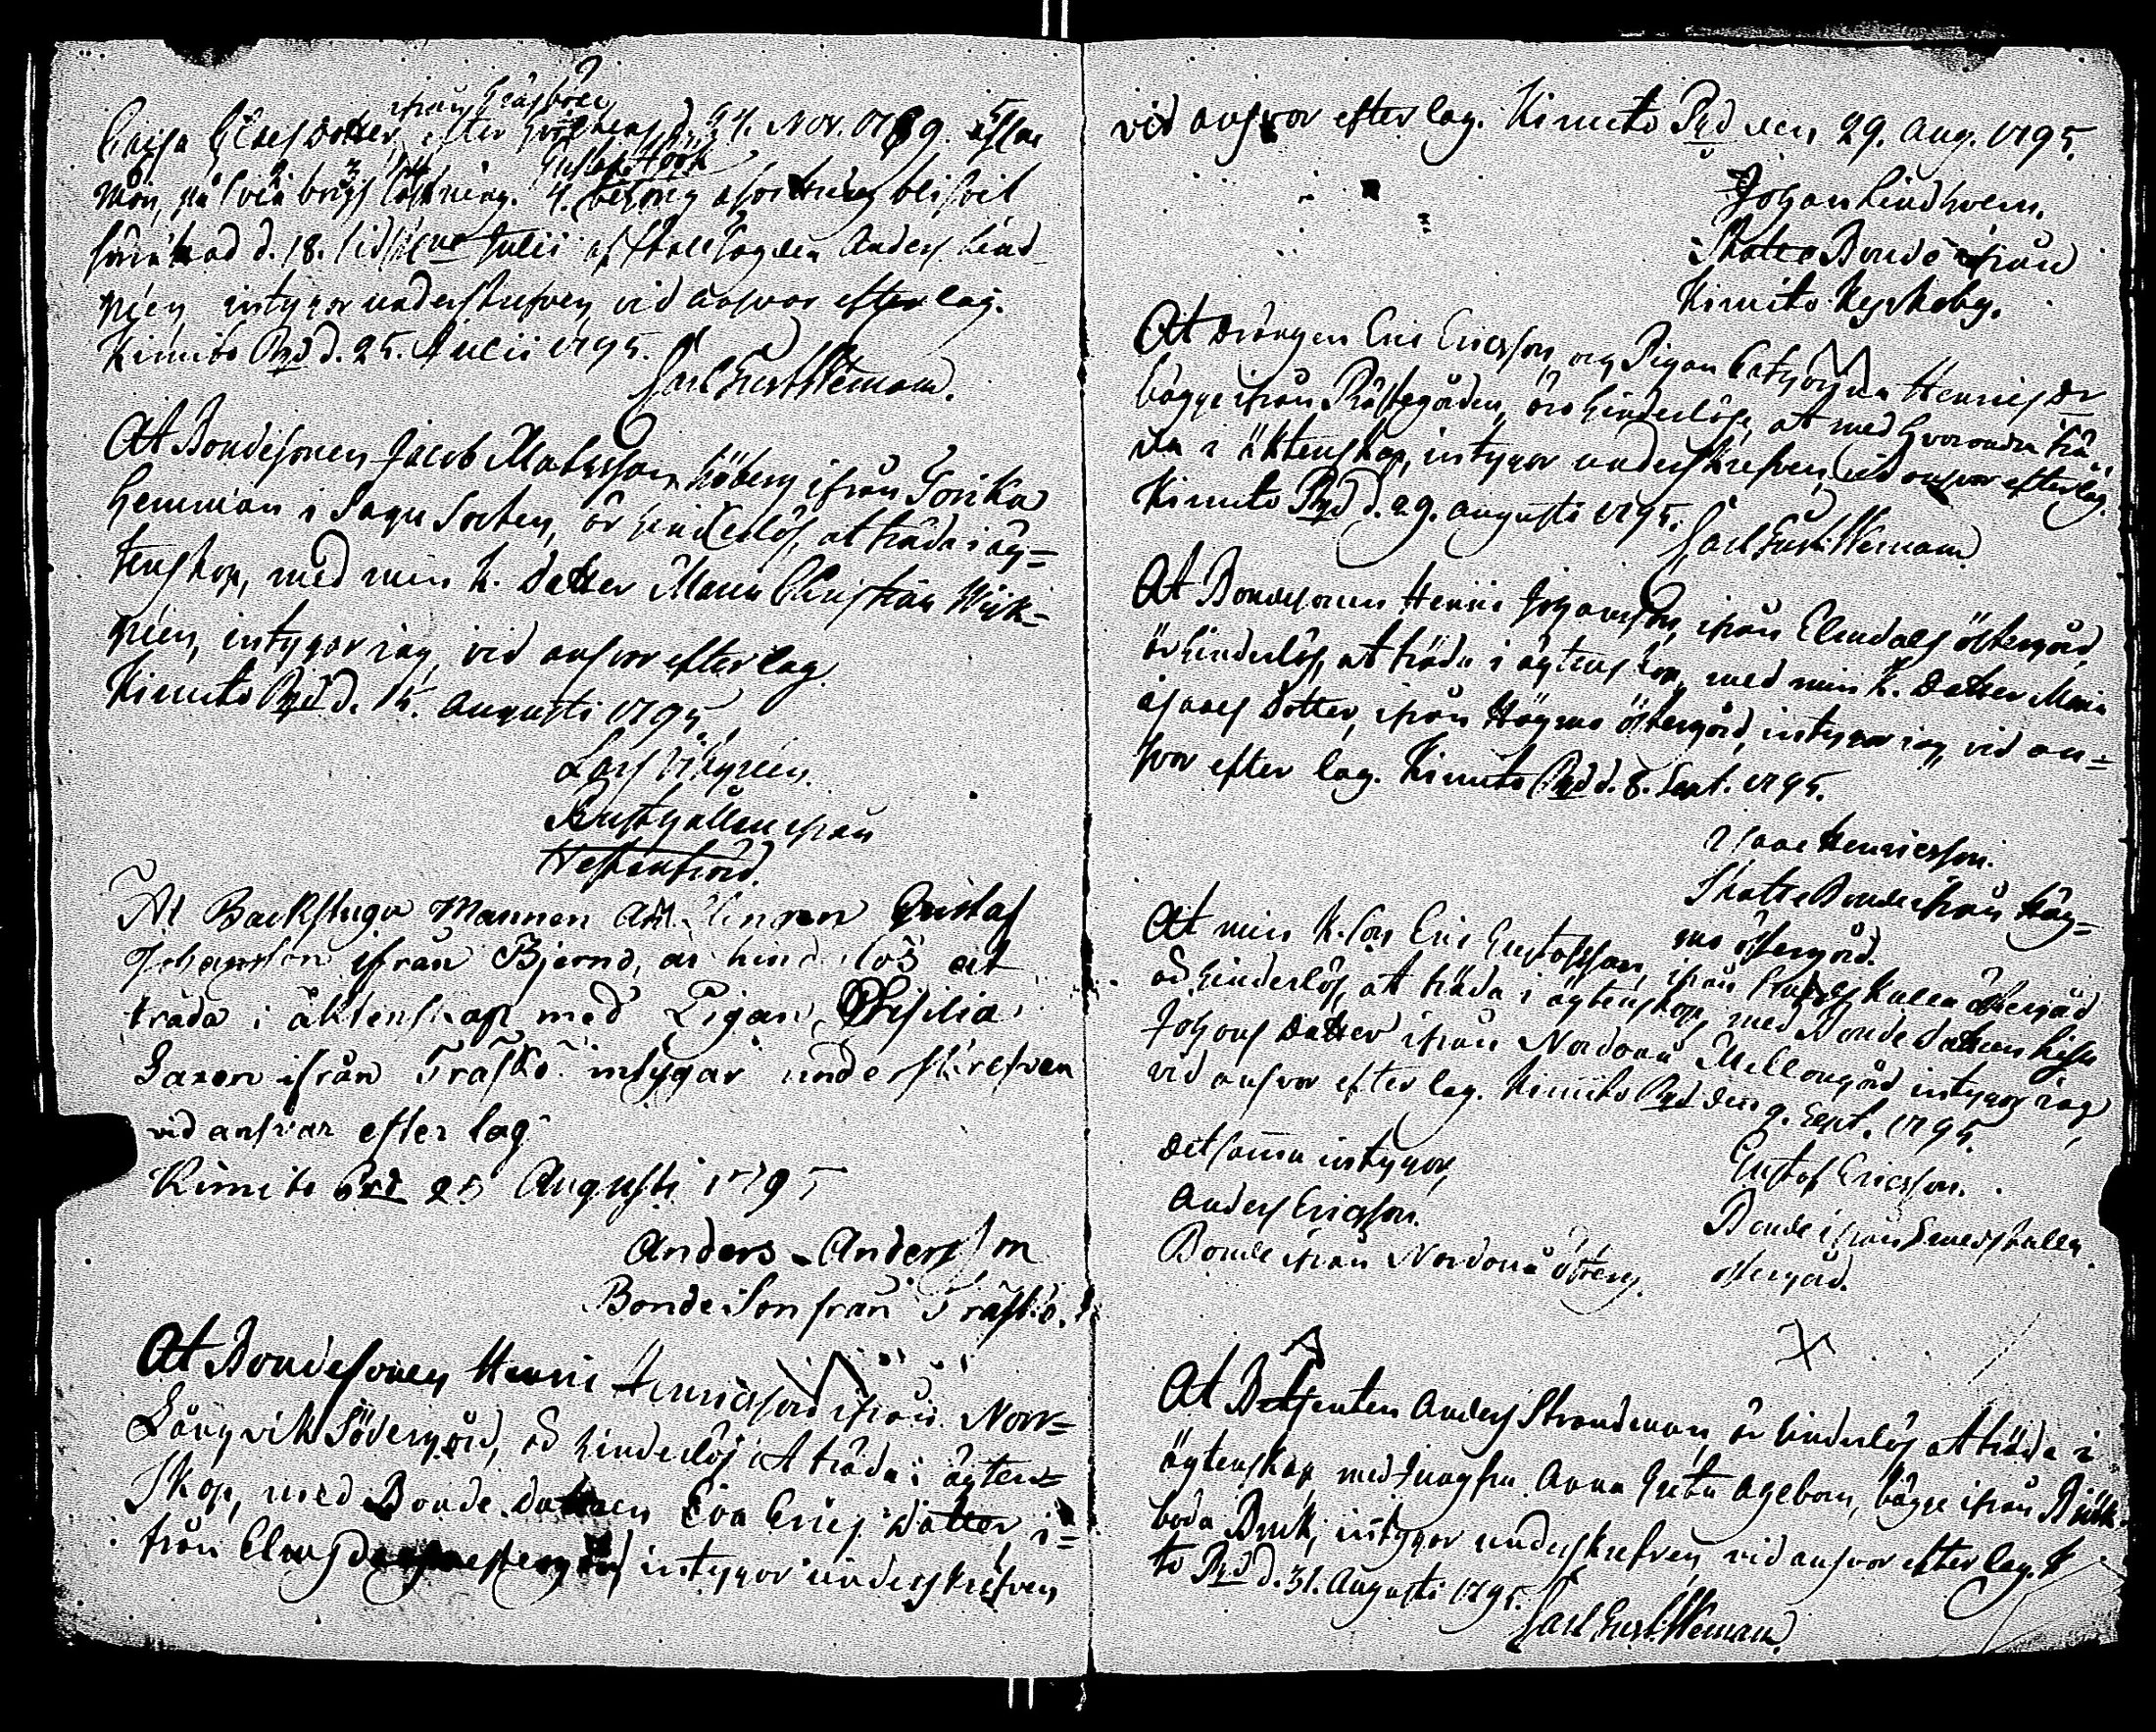 ifrån Gräsböle
Caisa Claes Dotter, efter d. 24. Nov. 1789.
Gustaf Höök
mon, på 4.
d. 18. Julii af Anders Lind-
rén, intygar underskrefven, vid answar efter lag.
Kimito Pgd d. 25. Julii 1795.
Carl Gust. Weman.
At Bondesonen Jacob Matsson Söberg ifrån Torika
hemman i Sagu Sochn, är hinderlös, at träda i äg-
tenskap, med min k. Datter Maria Christina Wijk-
rén, intygar jag, vid answar efter lag.
Kimito Pgd d. 15. Augusti 1795.
Lars Vikgrén.
Rusthållare ifrån
Westanfiärd.
At Backstugu Mannen Gustaf
Johansson ifrån Bjernö, är hinderlös at
träda i äktenskap med Pigan Cisilia
Saxen ifrån Träskö intygar underskrefven
vid answar efter lag
Kimito Pgd 25 Augusti 1795
Anders Andersson
Bonde Son från Träskö.
At Bondesonen Henric Henricsson ifrån Norr=
Långvik Södergård, är hinderlös at träda i ägten=
skap, med Bonde datteren Eva Erics Datter, i=
från intygar underskrefven
vid answar efter lag. Kimito Pgd den 29. Aug. 1795.
Johan Lindholm.
Skatte Bonde ifrån
Kimito Kyrkoby.
At Drängen Eric Ericsson, och Pigan Catharina Henrics Dr
bägge ifrån Prästegården, äro hinderlöse, at med hvarandra trä-
da i äktenskap, intygar underskrefven, vid answar efter lag.
Kimito Pgd d. 29. Augusti 1795.
Carl Gust. Weman
At Bondesonen Henric Johansson, ifrån Elmdals östergård,
är hinderlös, at träda i ägtenskap, med min k. Datter Maria
Isaacs Dotter, ifrån Högmo östergård, intygar jag, vid an=
svar efter lag. Kimito Pgd d. 8. Sept. 1795.
Isaac Henricsson.
Skatte Bonde ifrån Hög=
mo östergård.
At min k. Son Eric Gustafsson, ifrån östergård
är hinderlös, at träda i ägtenskap, med Bonde Datteren Lisa
Johans Datter ifrån Nordanå Mellangård intygar jag,
vid answar efter lag. Kimito Pgd den 9. Sept. 1795.
Det samma intygar,
Anders Ericsson.
Bonde ifrån Nordanå österg.
Gustaf Ericsson.
Bonde ifrån
östergård.
At Betjenten Anders Strandman, är hinderlös at träda i
ägtenskap, med Jungfru Anna Greta Ageborn, bägge ifrån Björk-
boda Bruk, intygar underskrefven, vid answar efter lag. K
to Pgd d. 31. Augusti 1795.
Carl Gust. Weman.